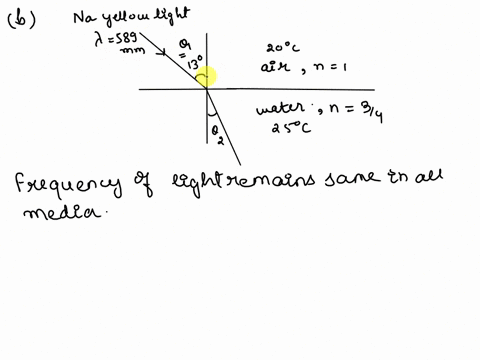 (b) Na yellow light
λ = 589 mm
θ1 = 13°
20°C
air, n = 1
water, n = 3/4
25°C
θ2
Frequency of light remains same in all
media.